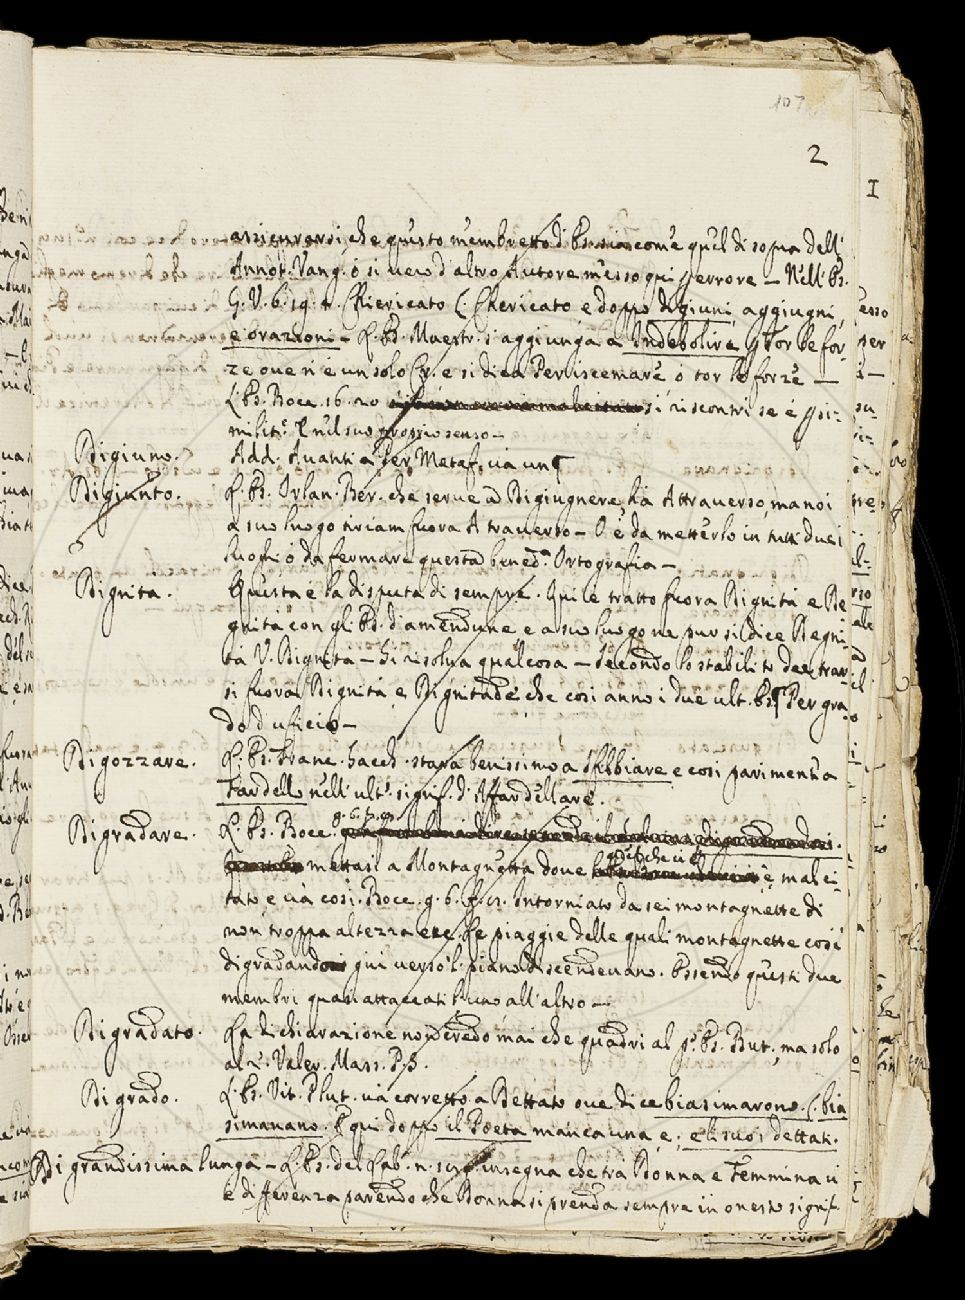 107
2
assicurarsi, che questo membretto d'Es. sia come quel di sopra dell'
Annot. Vang. ó si vero d'altro Autore messo qui p errore — Nell'Es.
G. V. 6. 19. 4. Chiericato L: Chericato e doppo digiuni, aggiugni,
e orazioni — L'Es. Maestr. s'aggiunga a Indebolire p Tor le for-
ze ove n'é un solo Es. e si dica Per iscemare ó tor le forze —
L'Es. Bocc. 16. 20 si riscontri se é p si-
milit.e ó nel suo proprio senso —
Digiuno. Add. Avanti a Per Metaf. va un ¶
Digiunto. L'Es. Orlan. Ber. che serve a Digiugnere, há Attraverso, ma noi
a suo luogo tiriam fuora A traverso — O é da metterlo in tutti due i
luoghi ó da fermare questa bened.a Ortografia —
Dignitá. Questa é la disputa di sempre. Qui é tratto fuora Dignitá e De
gnitá con gli Es. d'amendune e a suo luogo ne pur si dice Degni-
tá V. Dignitá — Si risolva qualcosa — Secondo lo stabilito dee trar-
si fuora Dignitá e Dignitade che cosi anno i due ult. Es. ¶ Per gra-
do d'uficio —
Digozzare. L'Es. Franc. Sacch. stará benissimo a Sfibbiare e cosi parimente a
Fardello nell'ult.o signif. d'Affardellare.
Digradare. L'Es. Bocc. g. 6. f.
mettasi a Montagnetta dove quel che ci é é mal ci-
tato e vá cosi. Bocc. g. 6. f. Intorniato da sei montagnette di
non troppa altezza ecc. Le piaggie delle quali montagnette cosi
digradando giú verso 'l piano discendevano. Essendo questi due
membri quasi attaccati l'uno all'altro —
Digradato. La dichiarazione non credo mai che quadri al p.o Es. But., ma solo
al 2.o Valer. Mass. P. S.
Digrado. L'Es. Vit. Plut. vá corretto a Dettato ove dice biasimarono. L: bia
simavano. E qui doppo il Poeta manca una e: e li suoi dettati.
Di grandissima lunga — L'Es. del Lab. n. insegna che trá Donna e Femmina vi
é differenza parendo che Donna si prenda sempre in onesto signif.
I